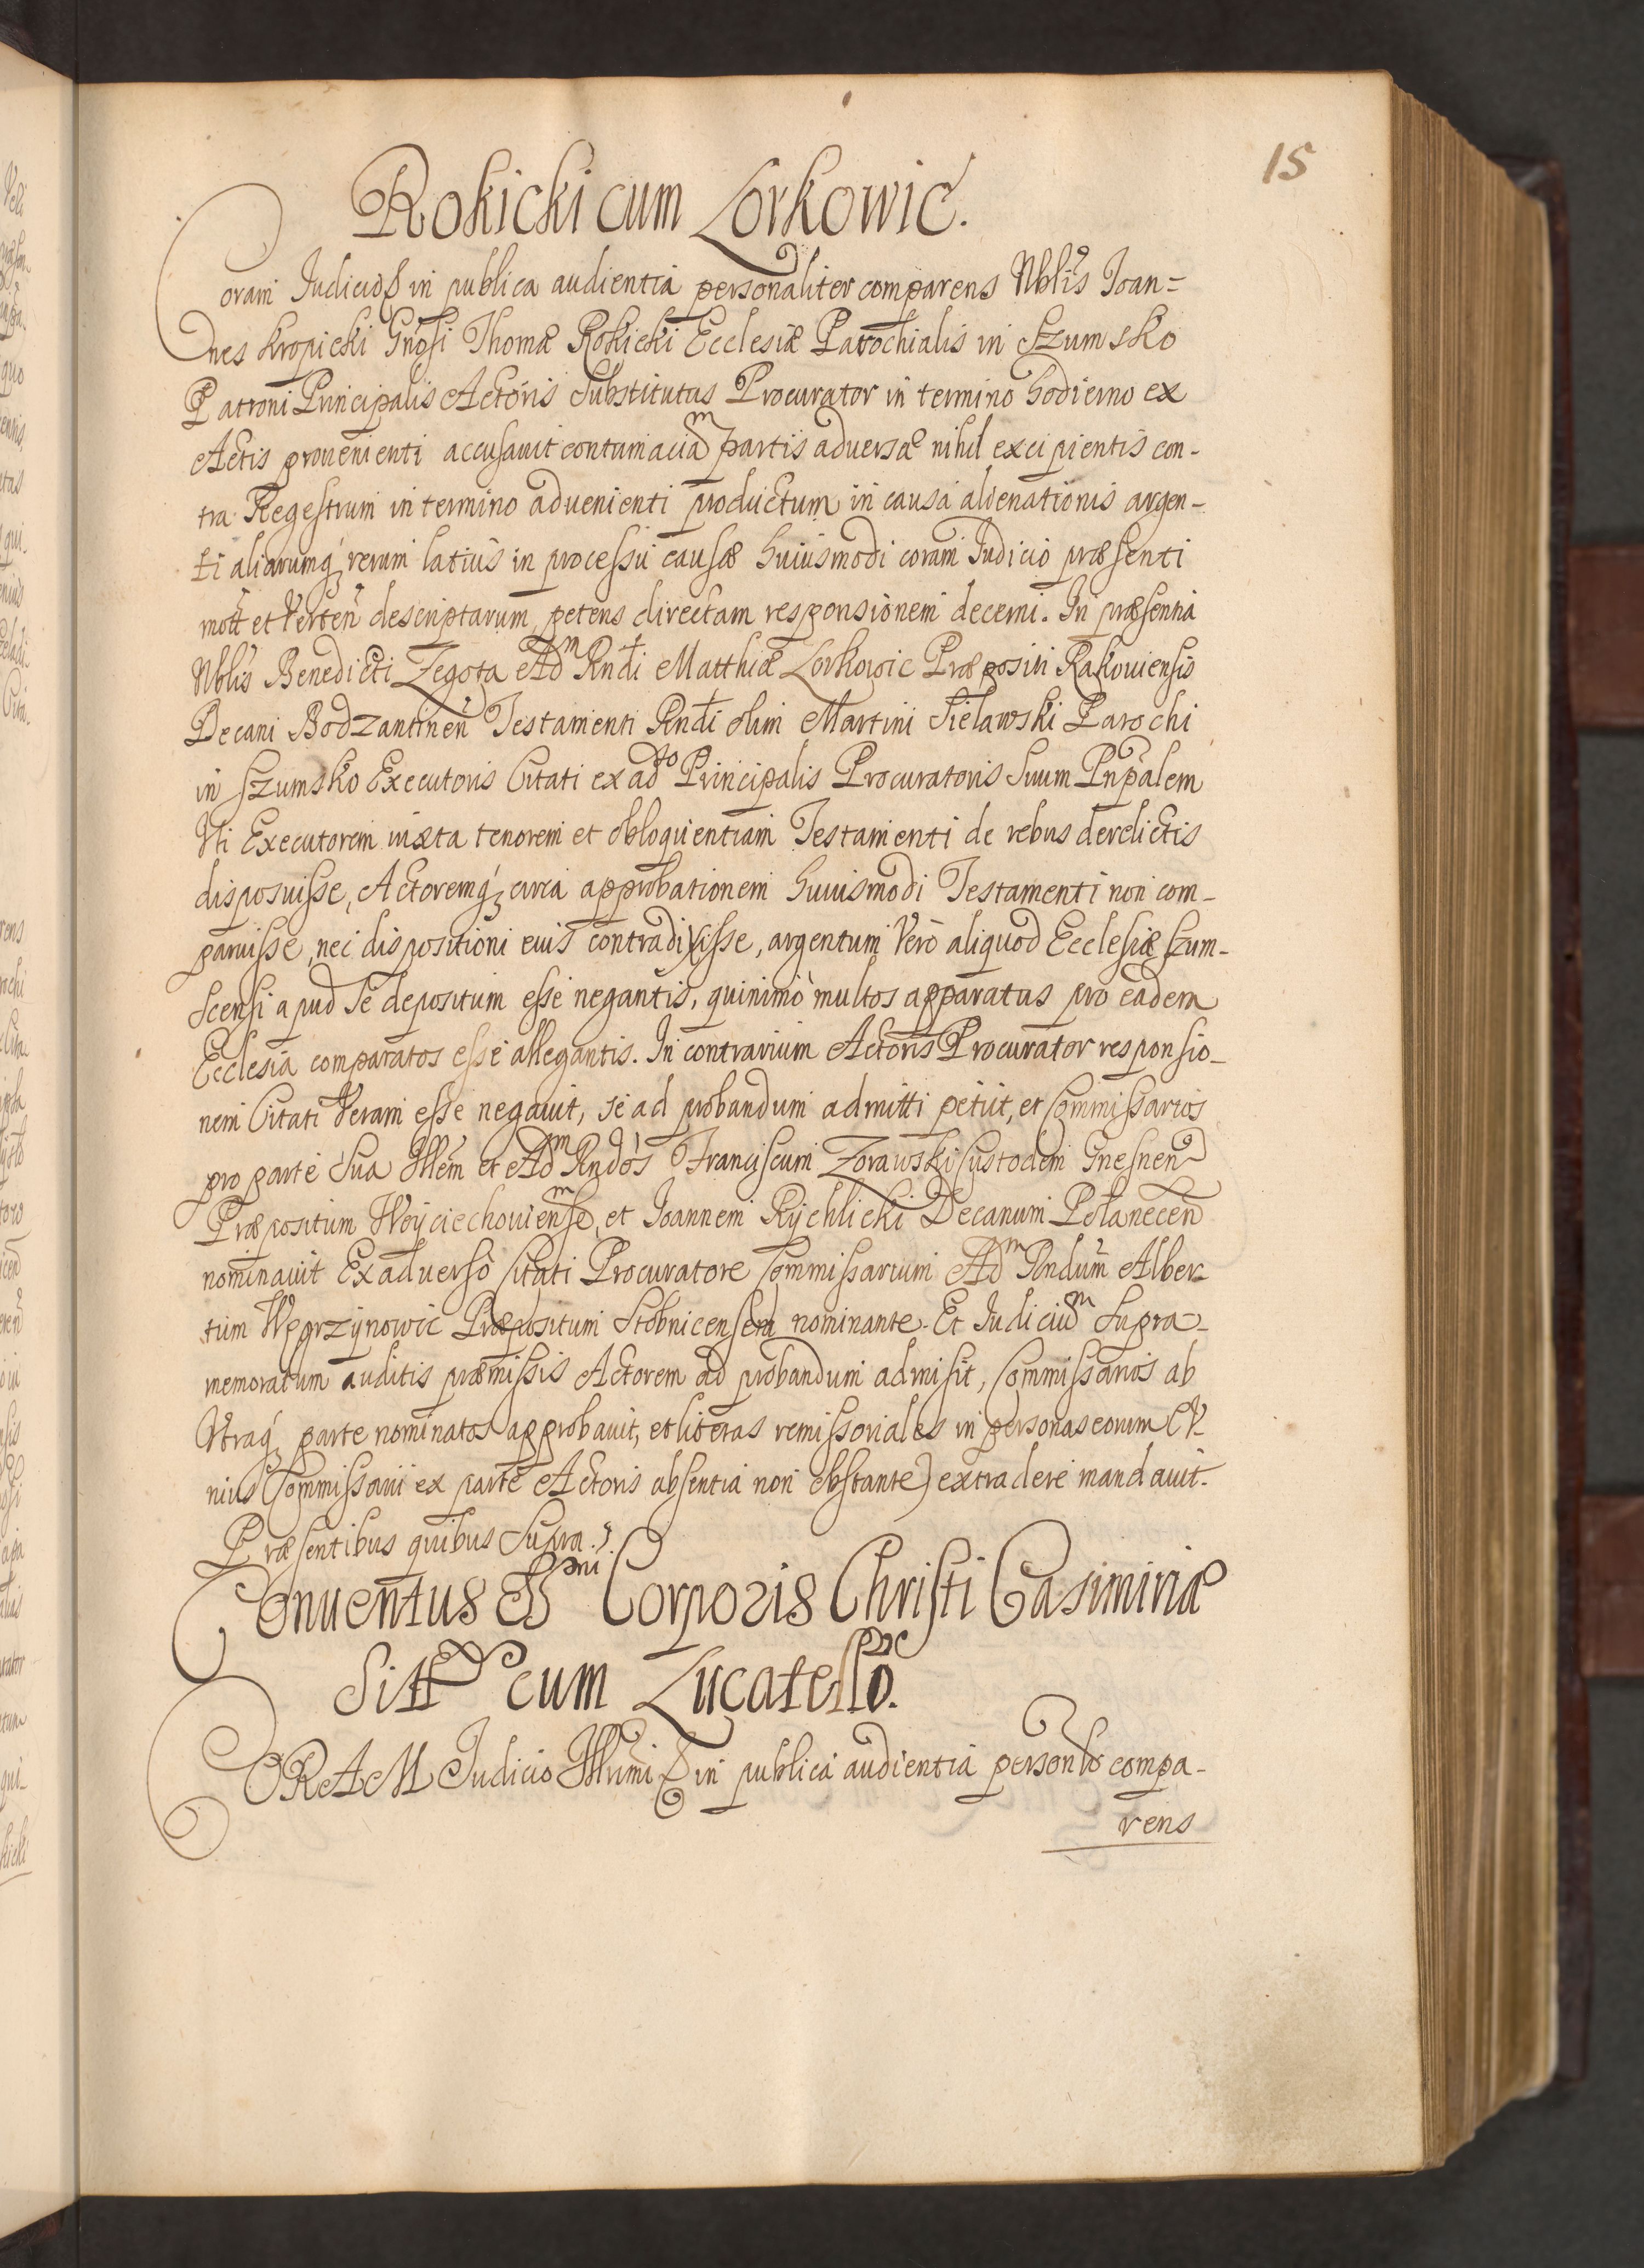 15
Rokicki cum Lorkowic.
Coram Judicio in publica audientia personaliter comparens Nblis Joan=
nes Kropicki Gnosi Thomæ Rokicki Ecclesiæ Parochialis in Szumsko
Patroni Principalis Actoris Substitutus Procurator in termino hodierno ex
Actis provenienti accusauit contumaciam partis adversæ nihil excipientis con-
tra Regestrum in termino advenienti productum in causa alienationis argen-
ti aliarumq, rerum latius in processu causæ huiusmodi coram Judicio præsenti
mott et Verten descriptarum, petens directam responsionem decerni. In præsentia
Nblis Benedicti Zegota Adm Rndi Matthiæ Lorkowic Præpositi Rakouiensis
Decani Bodzantinen Testamenti Rndi olim Martini Sielawski Parochi
in Szumsko Executoris Citati ex adto Principalis Procuratoris Suum Pnpalem
Vti Executorem iuxta tenorem et obloquentiam Testamenti de rebus derelictis
disposuisse, Actoremq, circa approbationem huiusmodi Testamenti non com-
paruisse, nec dispositioni euis contradixisse, argentum Vero aliquod Ecclesiæ Szum-
scensi apud Se depositum esse negantis, quinimo multos apparatus pro eadem
Ecclesia comparatos esse allegantis. In contrarium Actoris Procurator responsio-
nem Citati Veram esse negauit, se ad probandum admitti petiit, et Commissarios
pro parte Sua Illem et Adm Rndos Franciscum Zorawski Custodem Gnesnen
Præpositum Woyciechouiensem, et Joannem Rychlicki Decanum Polanecen
nominauit Ex adverso Citati Procuratore Commissarium Adm Rndum Alber-
tum Węgrzynowic Præpositum Stobnicensem nominante. Et Judicium Supra-
memoratum auditis præmissis Actorem ad probandum admisit, Commissarios ab
Vtraq, parte nominatos approbauit, et literas remissoriales in personas eorum (V-
nius Commissarii ex parte Actoris absentia non obstante) extradere mandauit.
Præsentibus quibus Supra.
Conuentus SSmi Corporis Christi Casimiriæ
Sitt cum Lucatello.
CORAM Judicio Illmi in publica audientia personlr compa-
rens